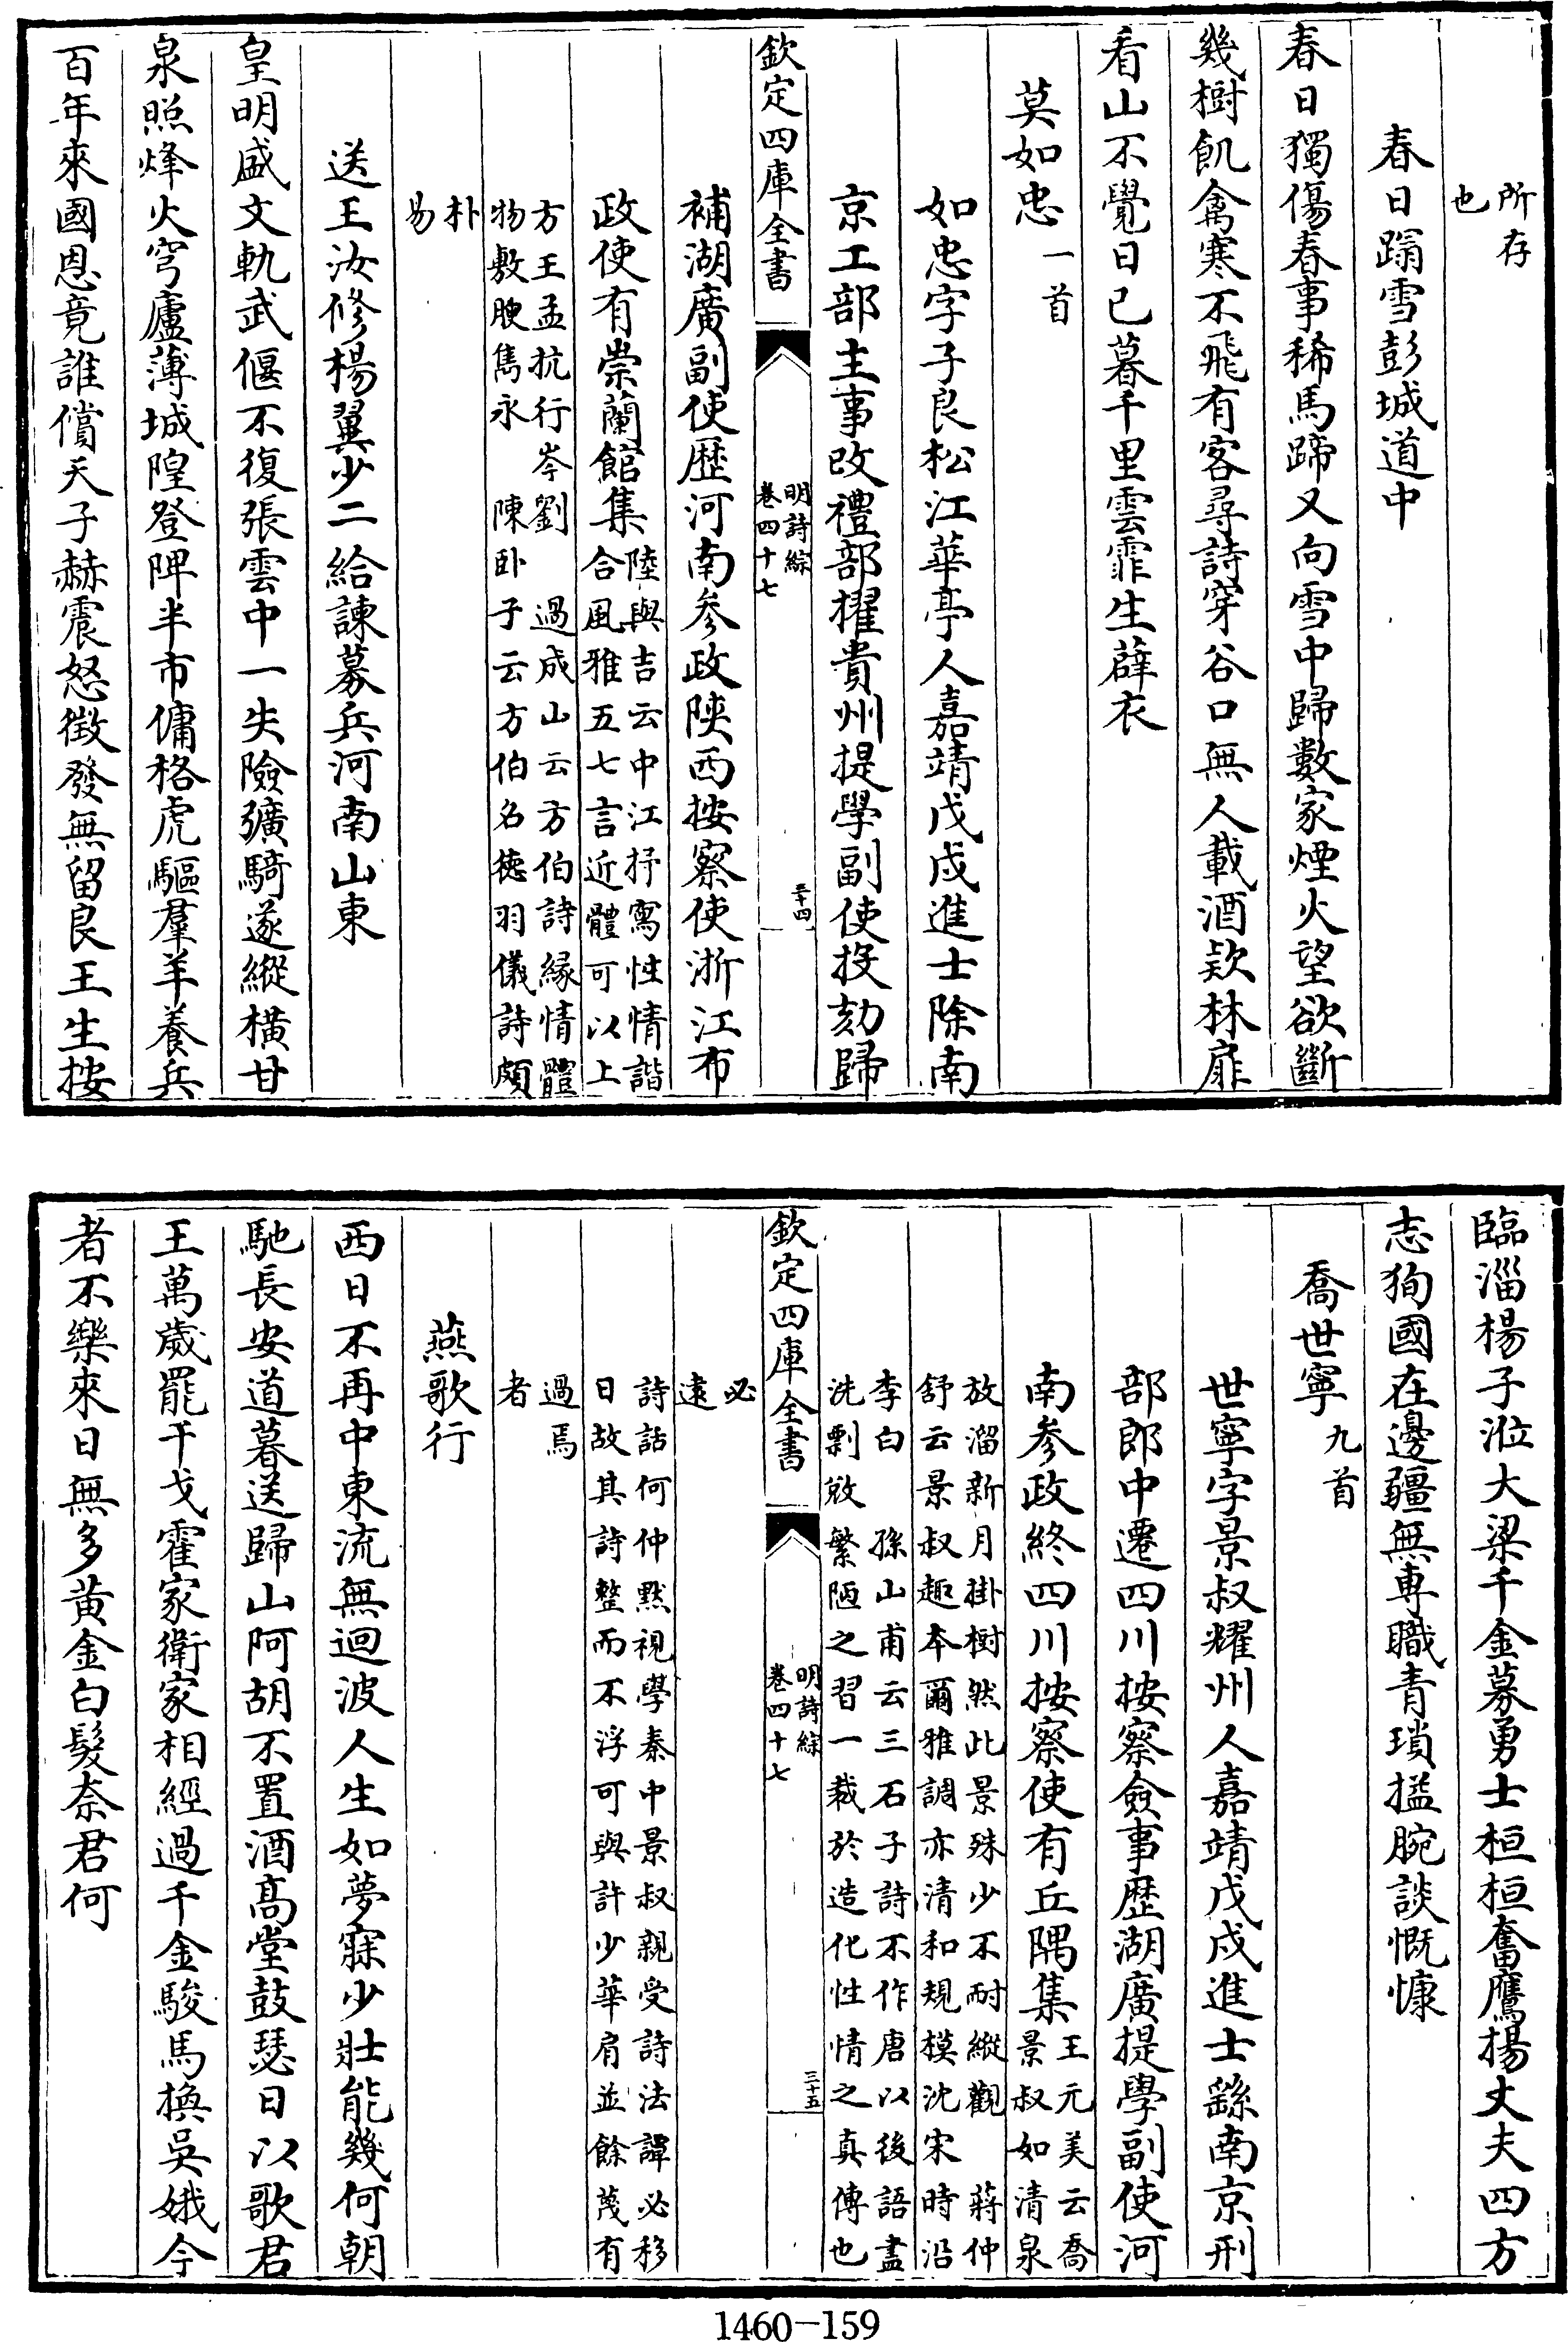 所存
也
春日蹋雪彭城道中
春日獨傷春事稀馬蹄又向雪中歸數家煙火望欲斷
幾樹飢禽寒不飛有客尋詩穿谷口無人載酒欵林扉
看山不覺日已暮千里雲霏生薜衣
莫如忠一首
如忠字子良松江華亭人嘉靖戊戌進士除南
京工部主事改禮部擢貴州提學副使投劾歸
欽定四庫全書
明詩綜
卷四十七
三十四
補湖廣副使歴河南參政陜西按察使浙江布
政使有崇蘭館集
陸與吉云中江抒寫性情諧
合風雅五七言近體可以上
方王孟抗行岑劉 過成山云方伯詩緣情體
物敷腴雋永 陳卧子云方伯名徳羽儀詩頗
朴
易
送王汝修楊翼少二給諫募兵河南山東
皇明盛文軌武偃不復張雲中一失險彍騎遂縱橫甘
泉照烽火穹廬薄城隍登陴半市傭格虎驅羣羊養兵
百年來國恩竟誰償天子赫震怒徴發無留良王生按
臨淄楊子涖大梁千金募勇士桓桓奮鷹揚丈夫四方
志狥國在邊疆無専職青瑣搤腕談慨慷
喬世寧九首
世寧字景叔耀州人嘉靖戊戌進士繇南京刑
部郎中遷四川按察僉事歴湖廣提學副使河
南參政終四川按察使有丘隅集
王元美云喬
景叔如清泉
放溜新月掛樹然此景殊少不耐縱觀 蔣仲
舒云景叔趣本爾雅調亦清和規模沈宋時沿
李白 孫山甫云三石子詩不作唐以後語盡
洗剽敓繁陋之習一裁於造化性情之真傳也
欽定四庫全書
明詩綜
卷四十七
三十五
必
遠
詩話何仲黙視學秦中景叔親受詩法譚必移
日故其詩整而不浮可與許少華肩並餘蔑有
過焉
者
燕歌行
西日不再中東流無迴波人生如夢寐少壯能幾何朝
馳長安道暮送歸山阿胡不置酒髙堂鼓瑟日以歌君
王萬歲罷干戈霍家衛家相經過千金駿馬換吳娥今
者不樂來日無多黃金白髮奈君何
1460-159